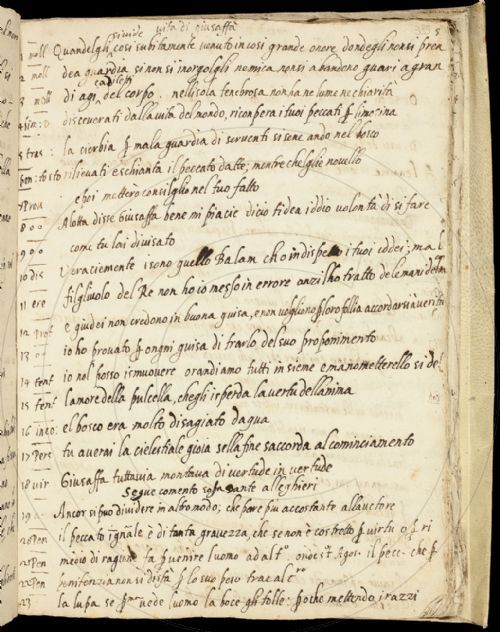 siuide vita di giusaffà
5
1 moll Quandelgli, cosi subitamente venuto in cosi grande onore, dondegli non si pren
2 moll dea guardia si non si inorgolgli nemica non si abandono guari a gran
3 moll di agi, del corpo. nell isola tenebrosa non ha ne lume ne chiarità
diletti
4 sim: disceuerati dalla vita del mondo, ricompera i tuoi peccati limosina
5 tras: la cierbia mala guardia di seruenti si sene ando nel bosco
rilieuati e schianta il peccato da tte; mentre chelglie nouello
7 Proa e poi mettero consilglio nel tuo fatto
8 Alotta disse Giusaffa bene mi piacie dicio tidea iddio volontà di si fare
9 come tu lai diuisato
10 dis Veraciemente i sono quello Balam ch o indispetto i tuoi iddei; ma l
11 ere filgliuolo del Re non ho io messo in errore anzi lho tratto dele mani del
12 e giudei non credono in buona guisa, e non volgliono loro follia accordarsi a verità
13 io ho prouato ongni guisa di trarlo del suo proponimento
14 tent io nol posso ismuouere orandiamo tutti insieme e manometterello si de
15 tent lamore della pulcella, che gli ir perda la vertu dell anima
16 inco: el bosco era molto disagiato daqua
17 Pers tu auerai la cielestiale gioia se lla fine saccorda al cominciamento
18 vir Giusaffa tuttauia montaua di vertude in vertude
Segue comento sopra Dante alleghieri
19 Ancor si puo diuidere in albo modo, che pare piu accostante all autore
20 Pen il peccato è di tanta grauezza, che se non è costretto virtu o ri
21 Pen medio di ragione fa uenire luomo ad alt° il pecc- che
22 Pen penitenzia non si disfa lo suo peso trae alt°
23 la lupa se uede luomo la boce gli tolle: poche mettendo i razzi